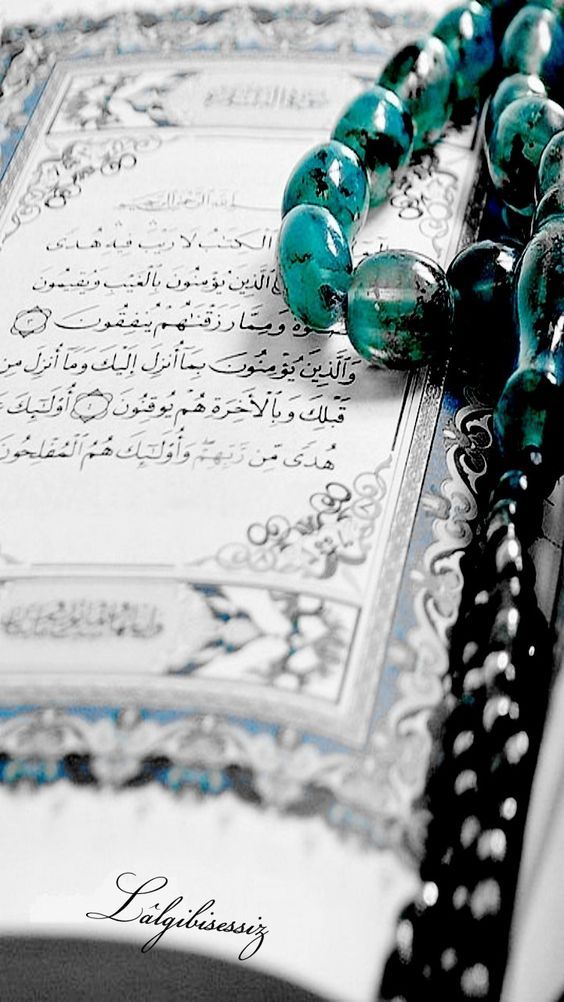 الكتب لا ريب فيه هدى
الذين يؤمنون بالغيب ويقيمون
ومما رزقنهم ينفقون
والذين يؤمنون بما أنزل إليك وما أنزل من
قبلك وبالآخرة هم يوقنون أولئك
هدى من ربهم وأولئك هم المفلحون
Lâlgibisessiz